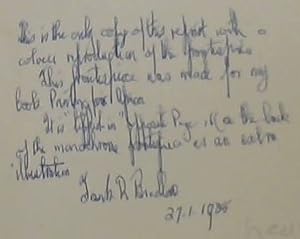 This is the only copy of this reprint with a
colour reproduction of the frontispiece
This frontispiece was made for my
book Printing for Africa
It is "tipped in" opposite Page on the back
of the monochrome frontispiece as an extra
illustration
Frank R Bradlow
27.1.1988